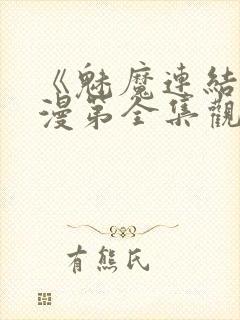 《魅魔連結
漫第全集觀
有熊氏